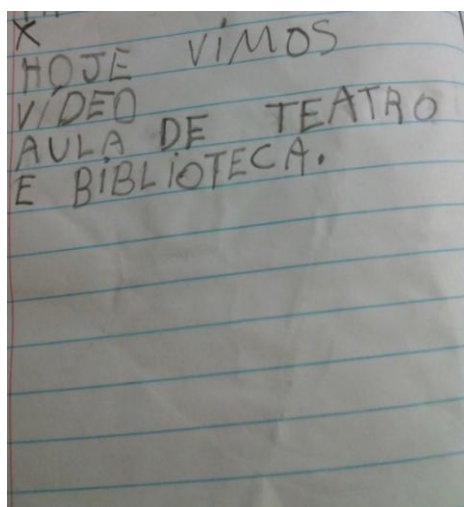 X
HOJE VIMOS
VÍDEO
AULA DE TEATRO
E BIBLIOTECA.